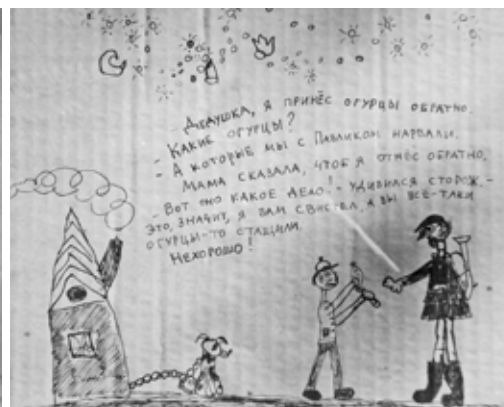 Дедушка, я принёс огурцы обратно.
- Какие огурцы?
- А которые мы с Павликом нарвали.
Мама сказала, чтоб я отнёс обратно,
- Вот оно какое дело! - удивился сторож. -
Это, значит, я вам свистел, а вы всё-таки
огурцы-то стащили.
Нехорошо!